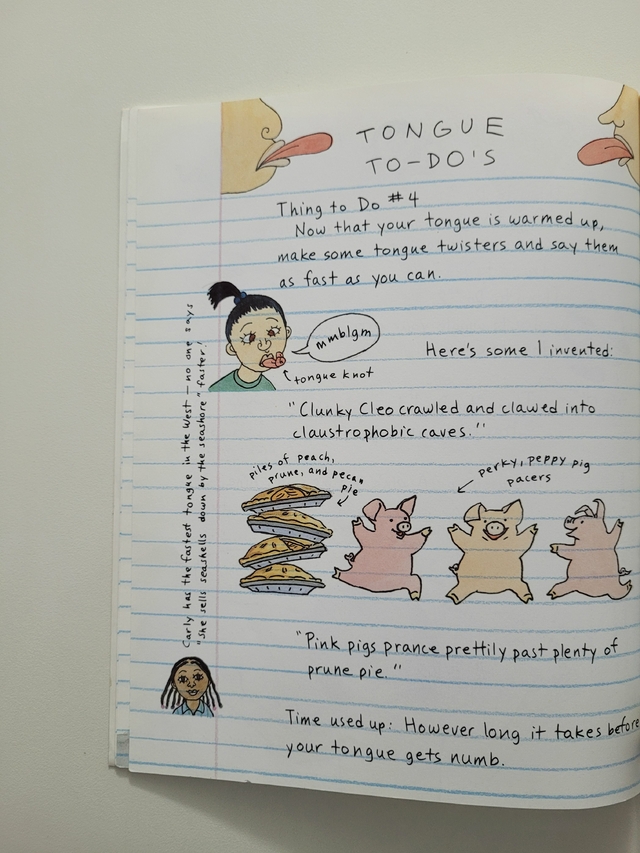 TONGUE
TO-DO'S
Thing to Do #4
Now that your tongue is warmed up,
make some tongue twisters and say them
as fast as you can.
mmblgm
tongue knot
Here's some I invented:
"Clunky Cleo crawled and clawed into
claustrophobic caves."
piles of peach,
prune, and pecan
pie
perky, peppy pig
pacers
"Pink pigs prance prettily past plenty of
prune pie."
Time used up: However long it takes before
your tongue gets numb.
Carly has the fastest tongue in the West — no one says
"she sells seashells down by the seashore" faster!